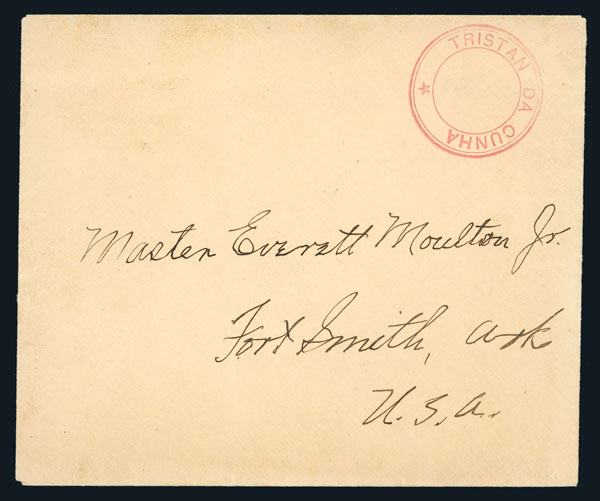 TRISTAN DA CUNHA
Master Everett Moulton Jr.
Fort Smith, Ark
U.S.A.